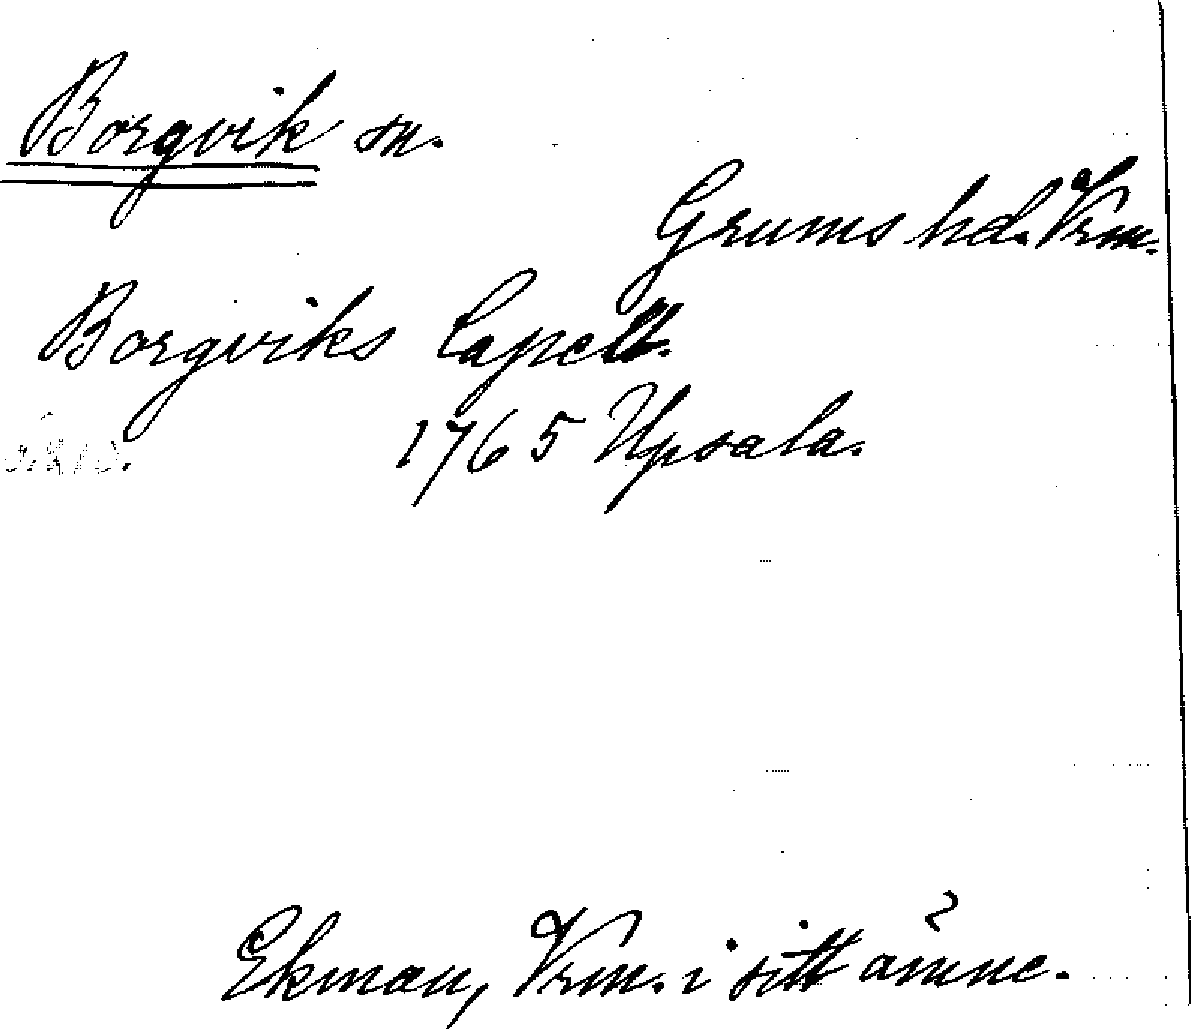 Borgvik sn.
Grums hd. Vrm.
Borgviks Capell.
1765 Upsala.
Ekman, Vrm. i sitt ämne.